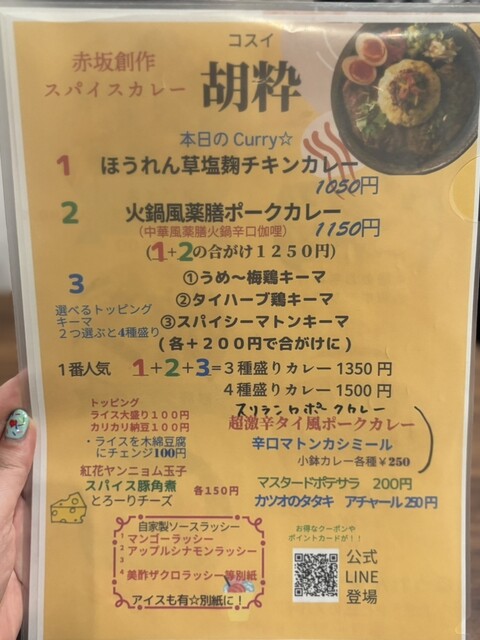 赤坂創作
スパイスカレー
コスイ
胡粋
本日のCurry☆
1 ほうれん草塩麹チキンカレー
1050円
2 火鍋風薬膳ポークカレー
1150円
(中華風薬膳火鍋辛口伽哩)
(1+2の合がけ1250円)
3 ①うめ〜梅鶏キーマ
②タイハーブ鶏キーマ
③スパイシーマトンキーマ
選べるトッピング
キーマ
2つ選ぶと4種盛り
(各+200円で合がけに)
1番人気 1+2+3=3種盛りカレー1350円
4種盛りカレー1500円
トッピング
ライス大盛り100円
カリカリ納豆100円
・ライスを木綿豆腐
にチェンジ100円
紅花ヤンニョム玉子
スパイス豚角煮
とろーりチーズ
各150円
スリランカポークカレー
超激辛タイ風ポークカレー
辛口マトンカシミール
小鉢カレー各種¥250
マスタードポテサラ 200円
カツオのタタキ アチャール250円
自家製ソースラッシー
1 マンゴーラッシー
2 アップルシナモンラッシー
3
4 美酢ザクロラッシー等別紙
アイスも有☆別紙に!
お得なクーポンや
ポイントカードが!!
公式
LINE
登場